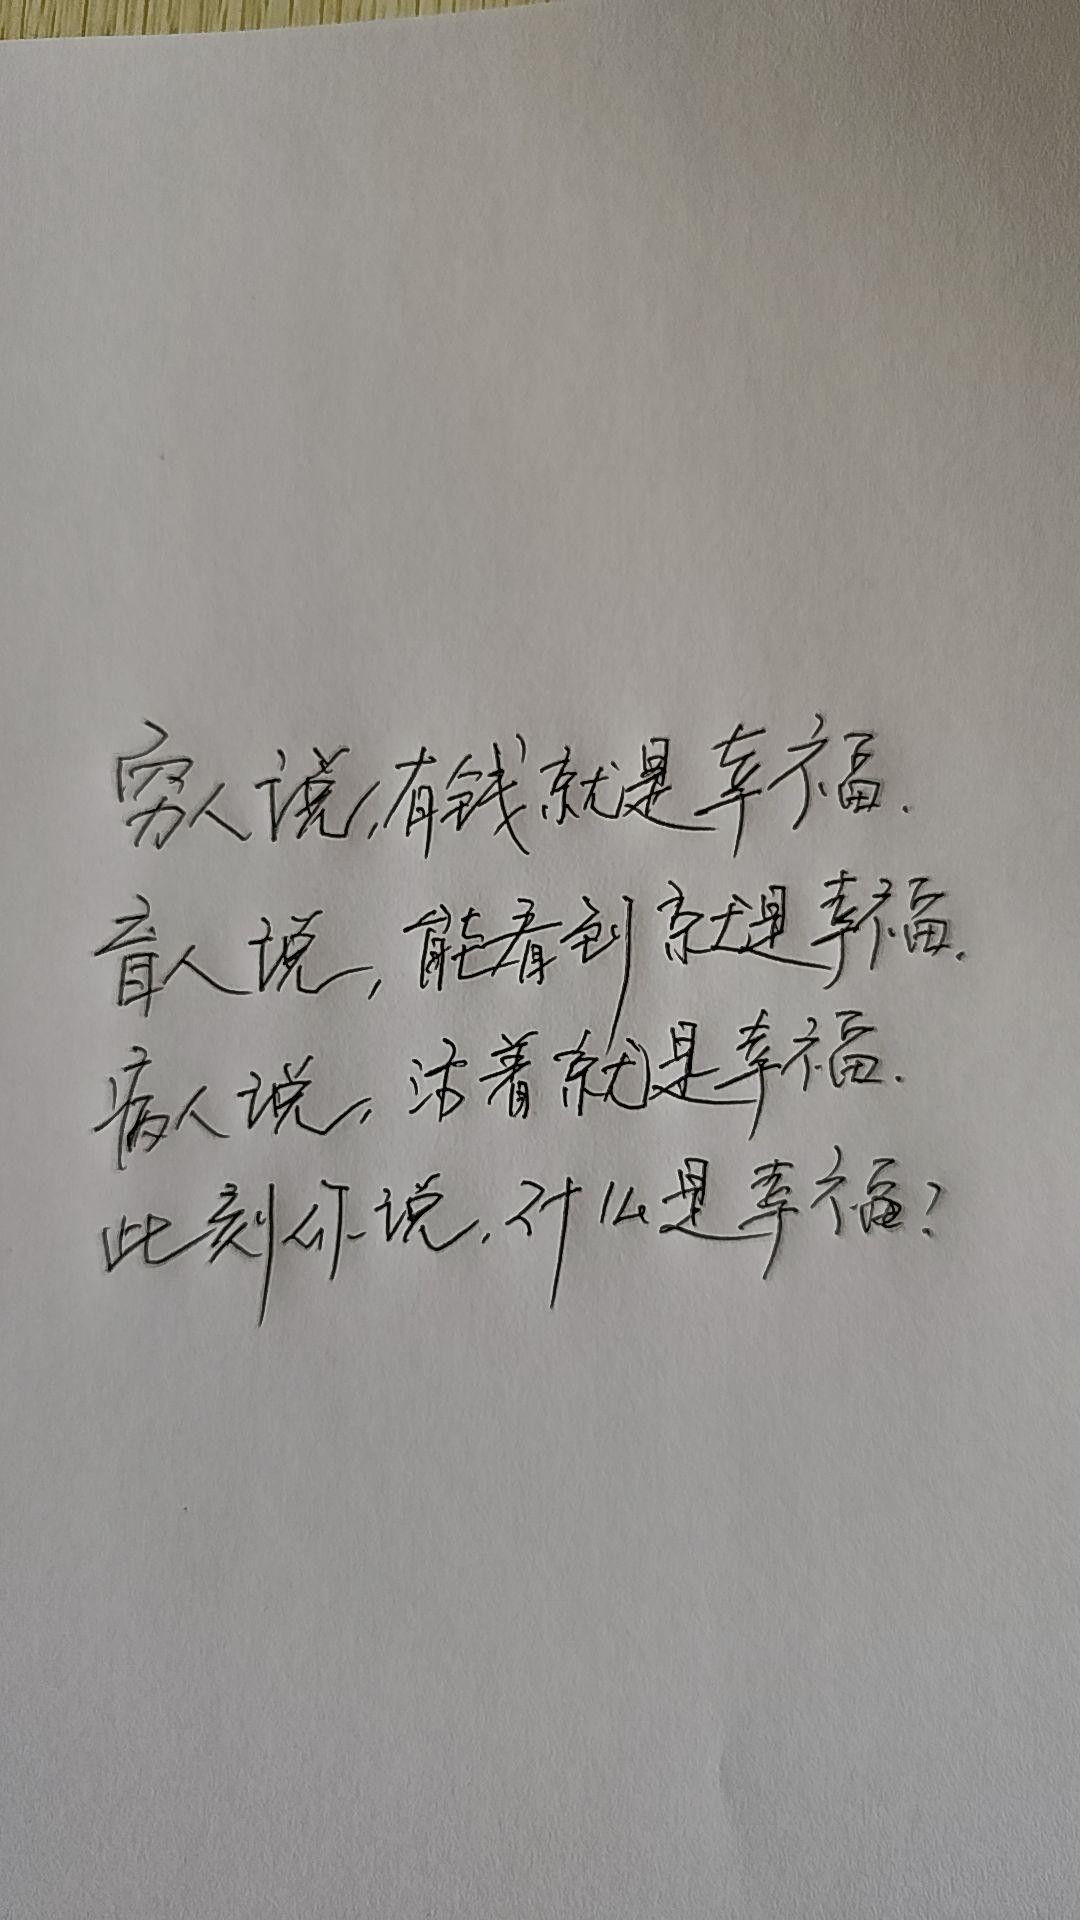 穷人说,有钱就是幸福.
盲人说,能看到就是幸福.
病人说,活着就是幸福.
此刻你说,什么是幸福?